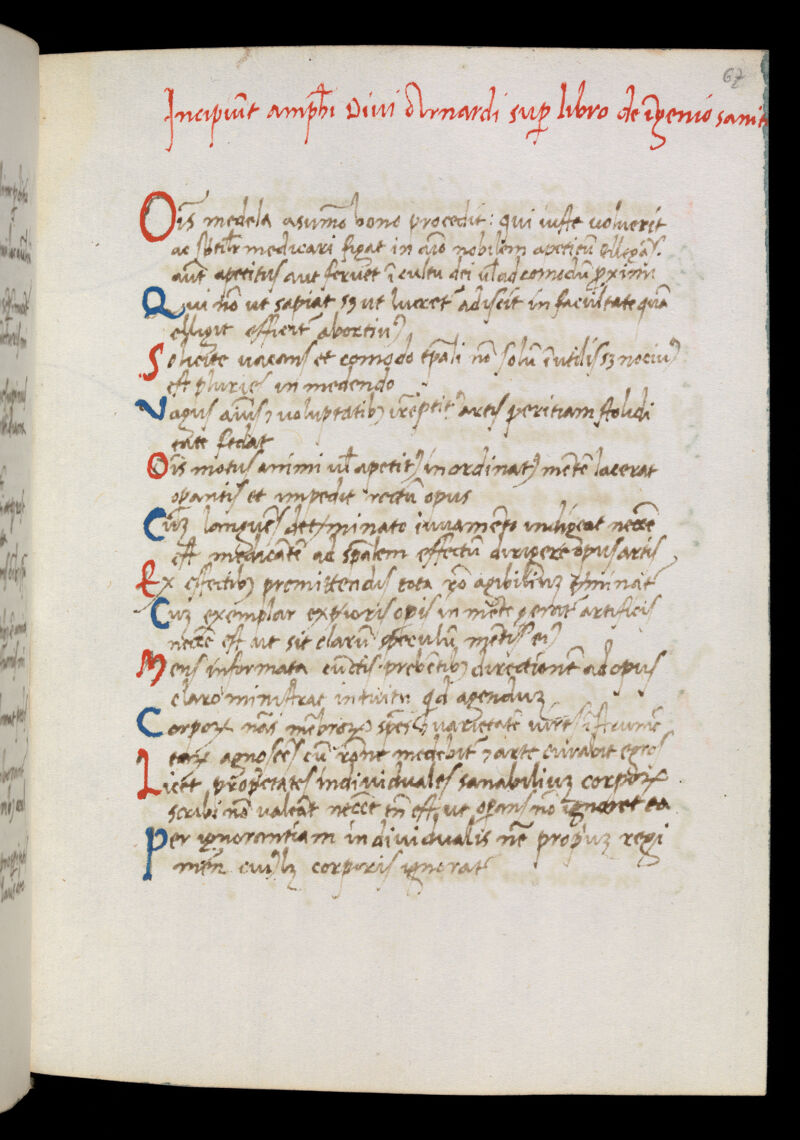 67
Incipiũt amph̃i Divi Arnardi sup̱ libro de ĩgenio sanit
Oĩs medela asum̃o bono procedit: qui iuste voluerit
ac sb̃til̃r medicari figat in q̃o nobilem apeticũ
aut apetitus aut ferveт̃ ĩ cultu dei ul̃ ad comodũ proximi
Qui nõ ut sapiat sz ut lucret᷑ adiscit in facultate quã
elligit efficit᷑ abortivꝰ
Solicite vacans et comodo tp̃ali nõ solũ ĩutilis sz nocivꝰ
est pluries in medendo
Vagus aĩus ⁊ voluptatibꝫ irreptitꝰ artis peritiam stolidi
tate fedat
Oĩs motus animi ul̃ apetitꝰ inordinatꝰ mẽtẽ lacerat
op̱antis et impedit rectũ opus
Cuz languẽs det̃minato iuvamẽto indigeat necc̃e
est medicãtẽ ad sp̃alem effectũ dirigere opus artis
Ex effectibꝫ promittendis tota rõ agibiliuz t̃minat᷑
Cuz exemplar ext̃ioris op̱is in mẽte gerat artificis
necc̃e est ut sit clarũ speculũ mentis eiꝰ
Mens informata cũctis prebẽtibꝫ directionẽ ad opus
claro ministrat intuitu qd̃ agenduz
Corpoꝝ nãs mẽbroꝝ spẽs ⁊ varietatẽ virtũs
eaꝝ agnoscẽs cũ rõne medebit᷑ ⁊ arte curabit egros
Licet proprietates individuales sanabiliuz corpoꝝ
scribi nõ valeãt necc̃e tñ est ut op̱ans nõ ignoret ea
Per ignorantiam individualis nẽ propriuz regi
mẽn cuiꝰlꝫ corporis ignorat᷑